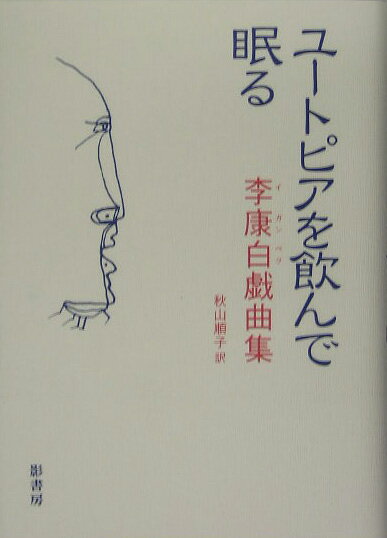 ユートピアを飲んで
眠る
李康白戯曲集
イ ガン ペク
秋山順子 訳
影書房